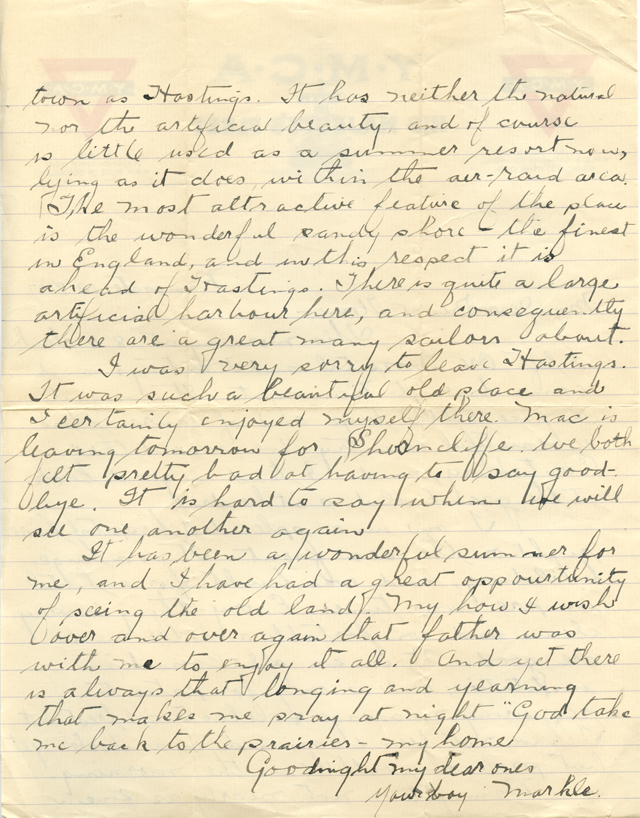 town as Hastings. It has neither the natural
nor the artificial beauty, and of course
is little used as a summer resort now,
lying as it does, within the aer-raid area.
The most attractive feature of the place
is the wonderful sandy shore - the finest
in England, and in this respect it is
ahead of Hastings. There is quite a large
artificial harbour here, and consequently
there are a great many sailors about.
I was very sorry to leave Hastings.
It was such a beautiful old place and
I certainly enjoyed myself there. Mac is
leaving tomorrow for Shorncliffe. We both
felt pretty bad at having to say good-
bye. It is hard to say when we will
see one another again
It has been a wonderful summer for
me, and I have had a great oppourtunity
of seeing the old land. My how I wish
over and over again that father was
with me to enjoy it all. And yet there
is always that longing and yearning
that makes me pray at night "God take
me back to the prairies - my home
Goodnight my dear ones
Your boy Markle.